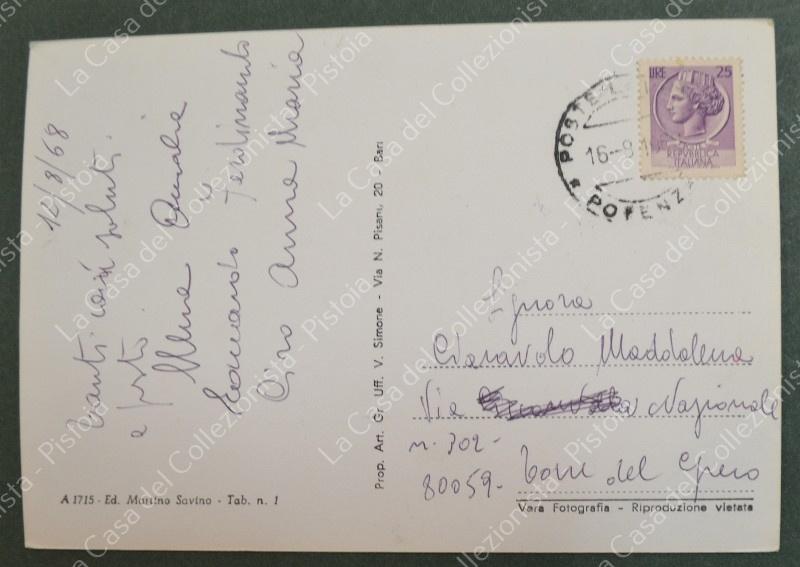 12/8/68
Tanti cari saluti.
a presto.
Anna
Romualdo Ferdinando
Ciro Anna Maria
A 1715 - Ed. Martino Savino - Tab. n. 1
Prop. Art. Gr. Uff. V. Simone - Via N. Pisani, 20 - Bari
LIRE 25
POSTE REPUBBLICA
ITALIANA
POSTE
16-8-19
POTENZA
Signora
Ciaravolo Maddalena
Via Nazionale
n. 702-
80059- Torre del Greco
Vera Fotografia - Riproduzione vietata
La Casa del Collezionista - Pistoia